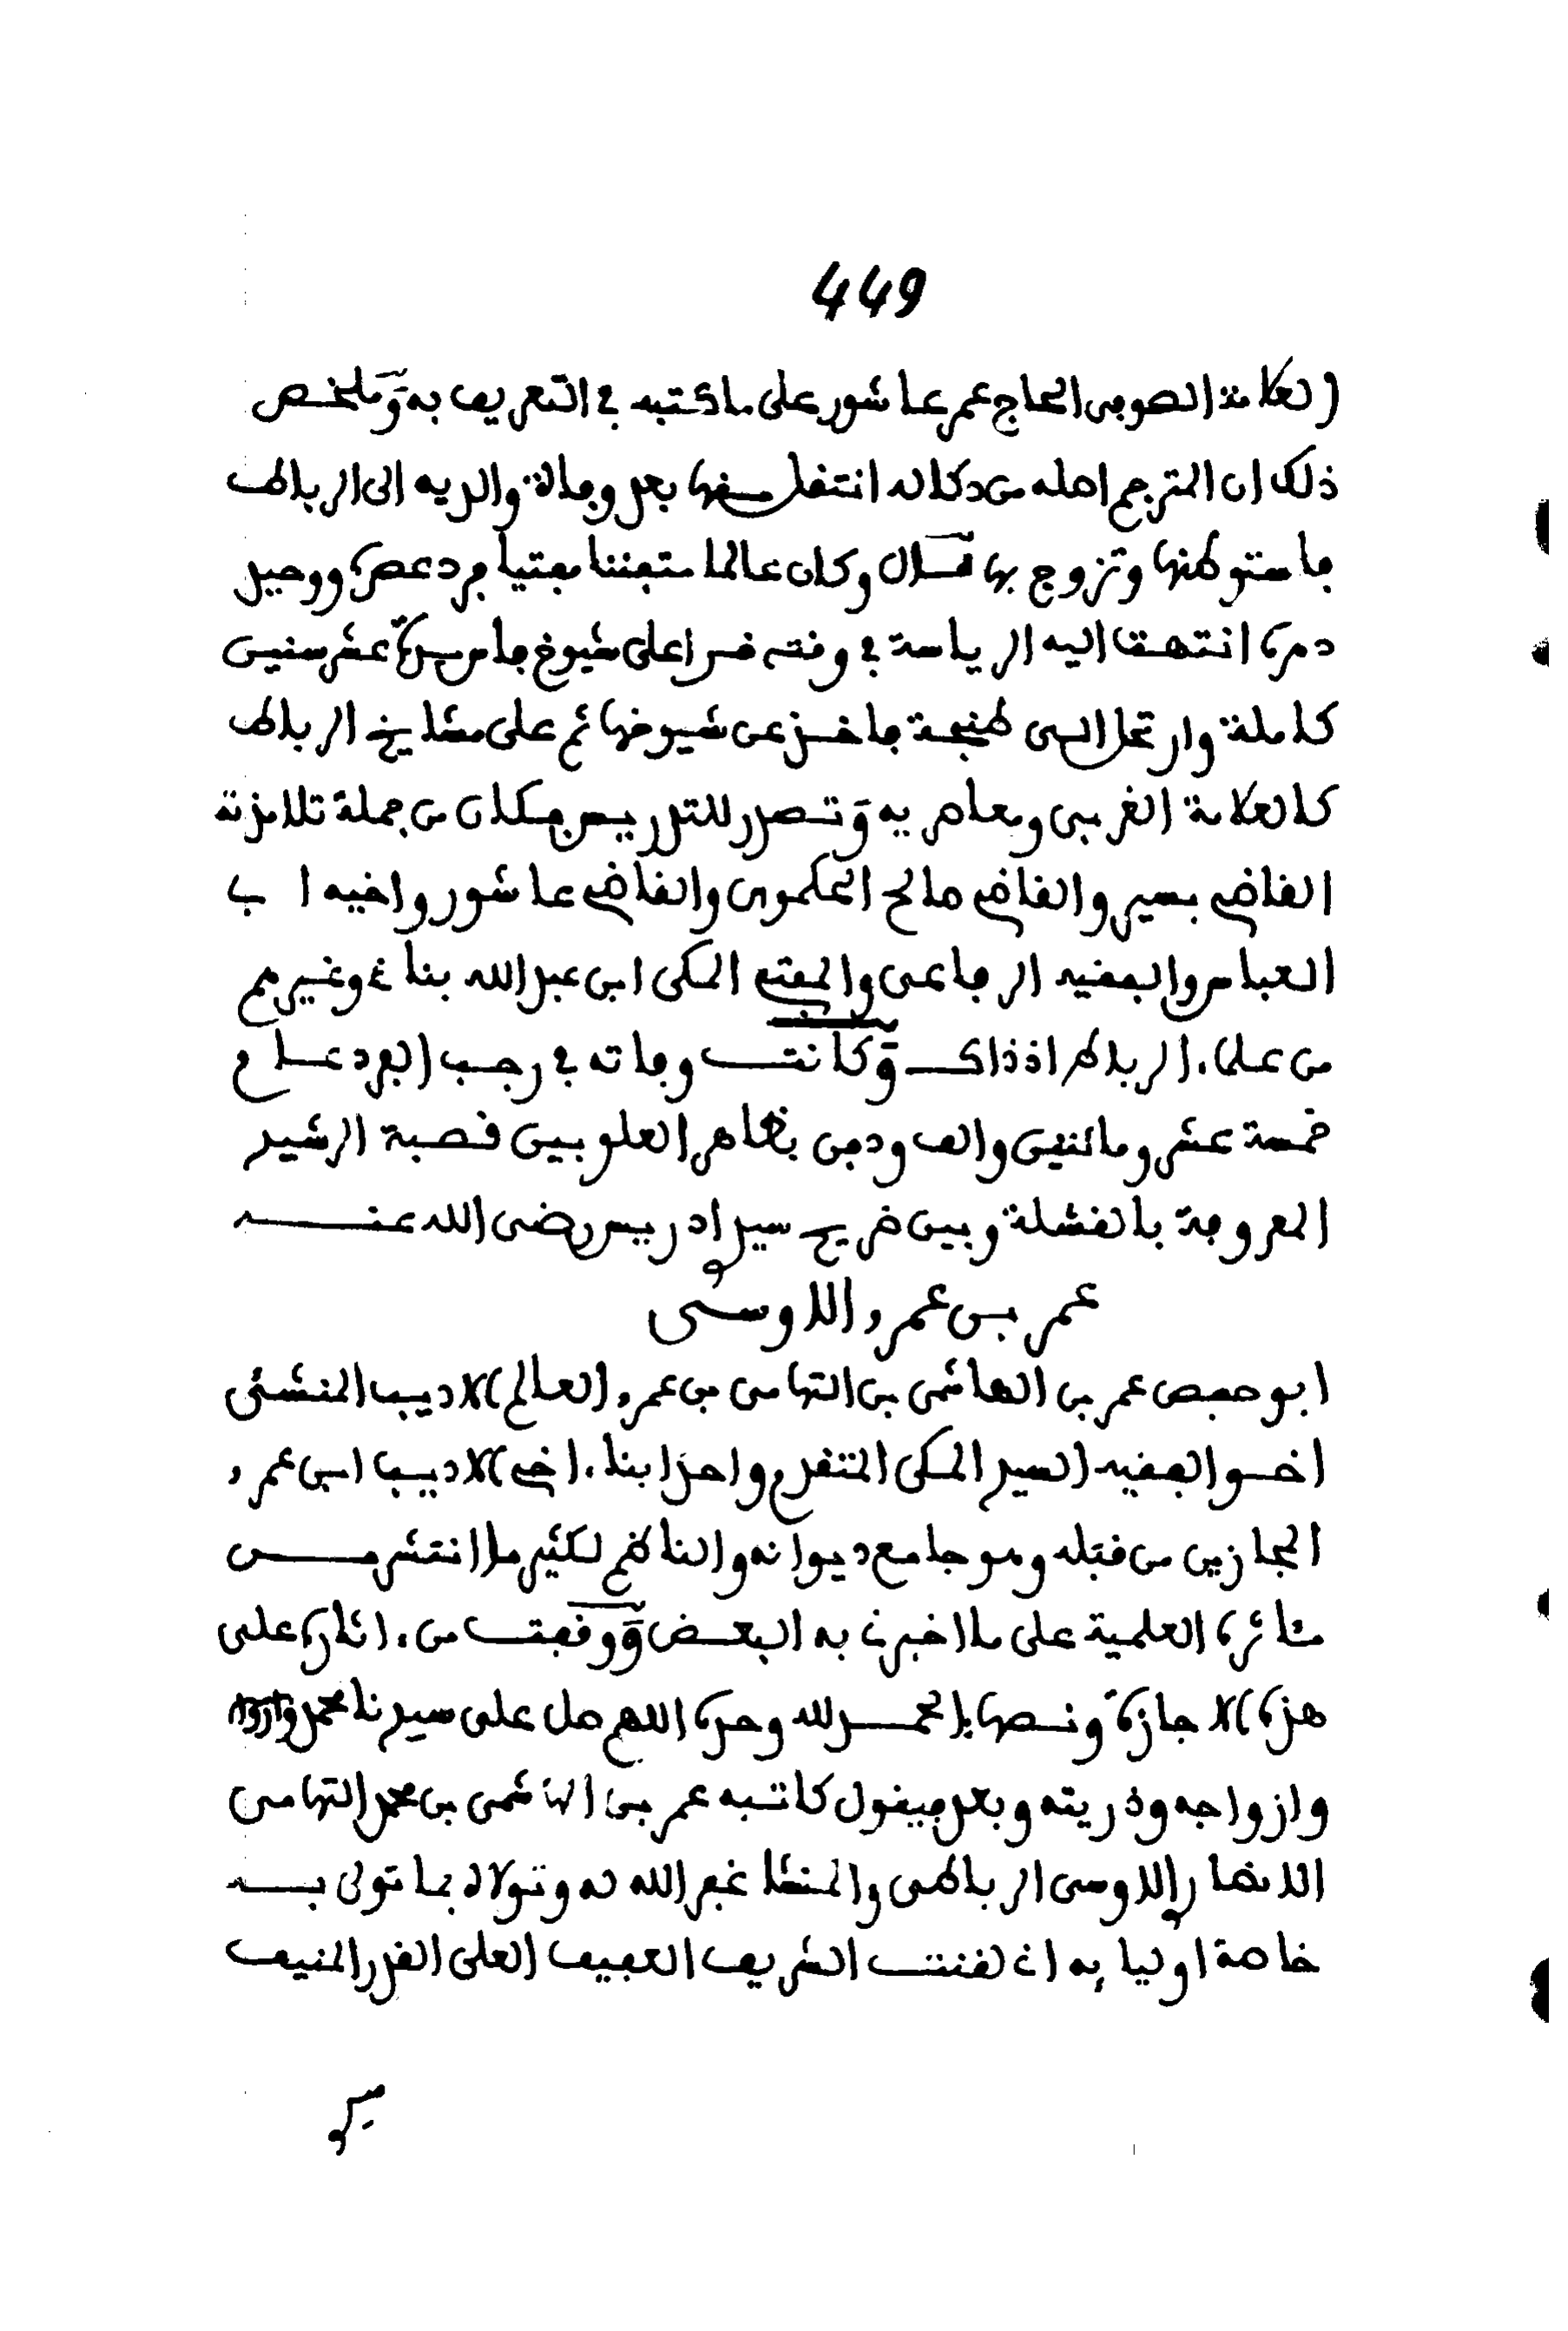 449
العلامة الصوفى الحاج عمر عاشور على ما كتبه في التعريف به وملخص
ذلك ان المترجم اصله من دكالة انتقل منها بعد وفاة والديه الى الرباط
فاستوطنها وتزوج بها قال وكان عالما متفننا مفتيا فرد عصره ووحيد
دهره انتهت اليه الرياسة في وقته قرا على شيوخ فاس عشر سنين
كاملة وارتحل الى طنجة فاخذ عن شيوخها ثم على مشايخ الرباط
كالعلامة الغربى ومعاصريه وتصدر للتدريس فكان من جملة تلامذته
القاضي بسير والقاضي صالح الحكموى والقاضي عاشور واخيه اب
العباس والفقيه الرفاعى والمفتي المكى ابن عبد الله بناني وغيرهم
من علماء الرباط اذذاك وكانت وفاته في رجب الفرد عام
خمسة عشر ومائتين والف ودفن بظاهر العلو بين قصبة الرشيد
المعروفة بالقشلة وبين ضريح سيد ادريس رضى الله عنه
عمر بن عمرو الاوسى
ابو حفص عمر بن الهاشمى بن التهامى بن عمرو العالم الاديب المنشئ
اخو الفقيه السيد المكى المتقدم واحد ابناء اخي الاديب ابن عمرو
المجازين من قبله وهو جامع ديوانه والناظم لكثير ما انتشر من
مئاثره العلمية على ما اخبرني به البعض ووقفت من ءاثاره على
هذه الاجازة ونصها الحمد لله وحده اللهم صل على سيدنا محمد وءاله
وازواجه وذريته وبعد فيقول كاتبه عمر بن الهاشمى بن محمد التهامى
الانصارى الاوسى الرباطى والمنشا غفر الله له وتولاه بما تولى به
خاصة اوليايه انى لقنت الشريف العفيف العلى القدر المنيف